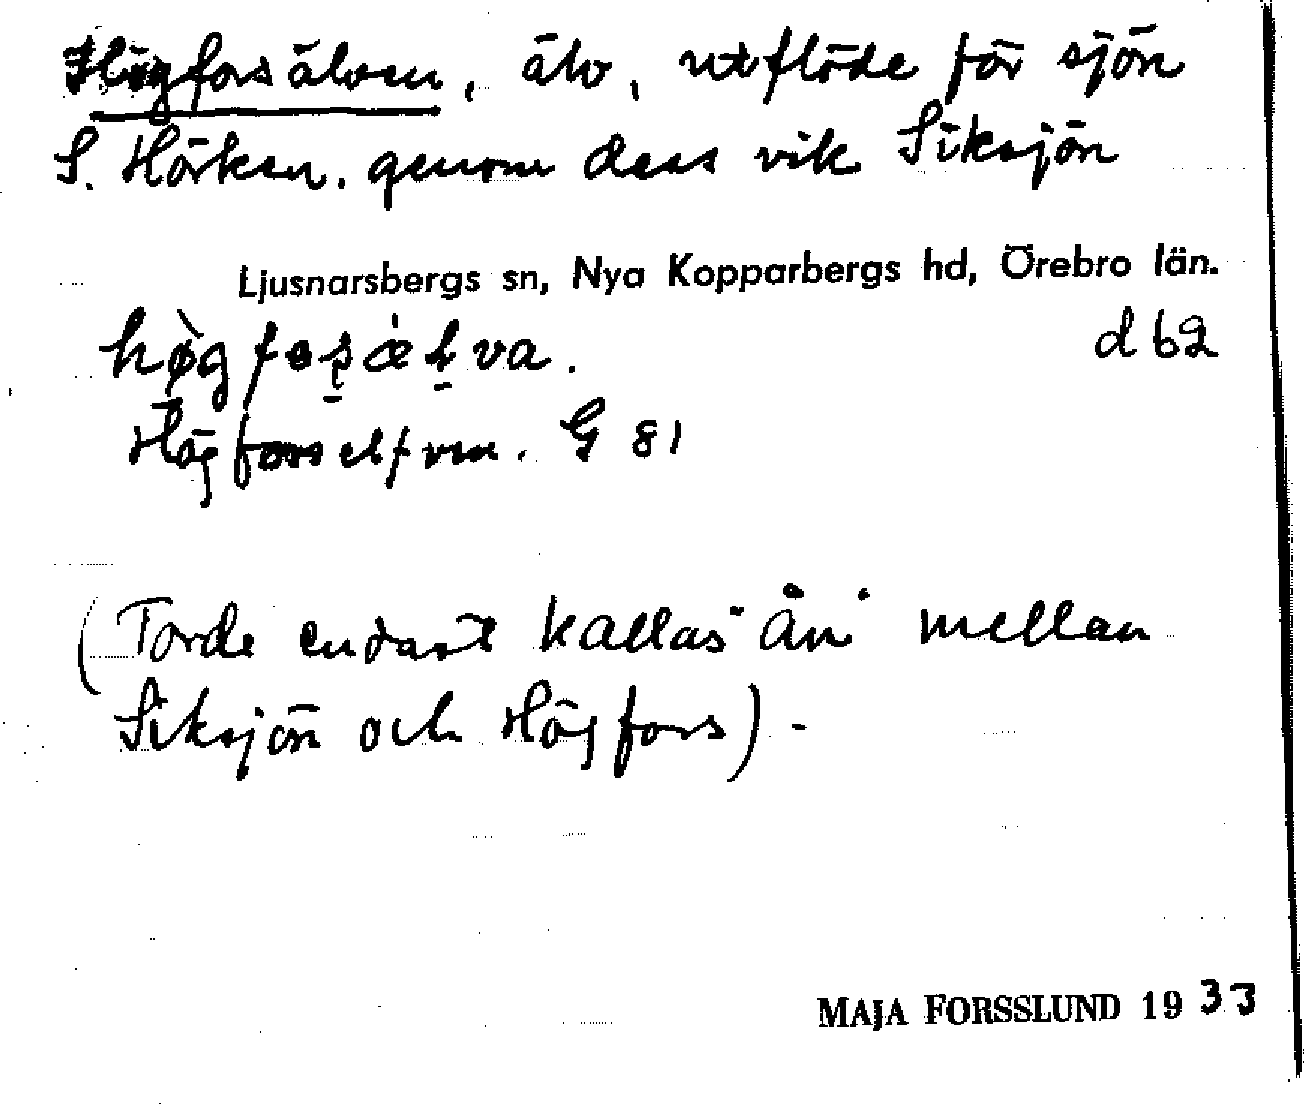 Högforsälven, älv, utflöde för sjön
S. Hörken, genom dess vik Siksjön
Ljusnarsbergs sn, Nya Kopparbergs hd, Örebro län.
d 62
Högforselfven. G 81
(Torde endast kallas "ån" mellan
Siksjön och Högfors) -
MAJA FORSSLUND 1933